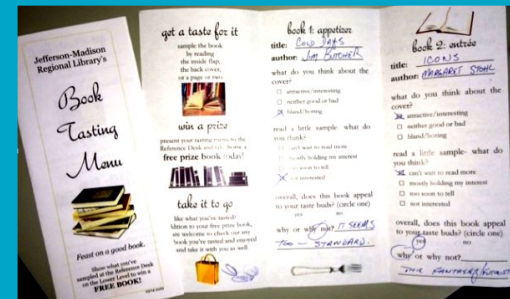 Jefferson-Madison
Regional Library's
Book
Tasting
Menu
Feast on a good book.
Show what you've
sampled at the Reference Desk
on the Lower Level to win a
FREE BOOK!
got a taste for it
sample the book
by reading
the inside flap,
the back cover,
or a page or two.
win a prize
present your tasting menu to the
Reference Desk and take home a
free prize book today!
take it to go
like what you've tasted?
addition to your free prize book,
are welcome to check out any
book you've tasted and enjoyed
and take it with you as well.
book 1: appetizer
title: COLD DAYS
author: JIM BUTCHER
what do you think about the
cover?
attractive/interesting
neither good or bad
bland/boring
read a little sample- what do
you think?
can't wait to read more
mostly holding my interest
too soon to tell
not interested
overall, does this book appeal
to your taste buds? (circle one)
yes no
why or why not? IT SEEMS
TOO - STANDARD.
book 2: entrée
title: ICONS
author: MARGARET STOHL
what do you think about the
cover?
attractive/interesting
neither good or bad
bland/boring
read a little sample- what do
you think?
can't wait to read more
mostly holding my interest
too soon to tell
not interested
overall, does this book appeal
to your taste buds? (circle one)
yes no
why or why not?